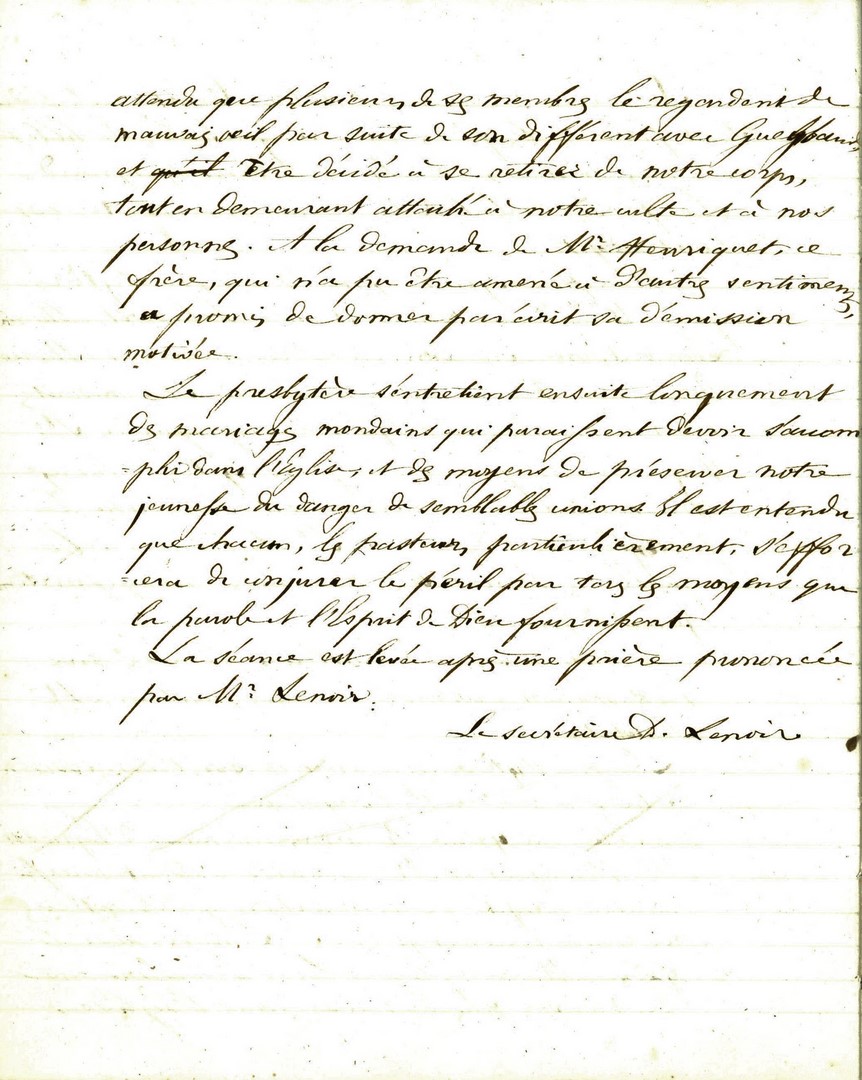 attendu que plusieurs de ses membres le regardent de
mauvais oeil par suite de son différent avec
et qu'il être décidé à se retirer de notre corps,
tout en demeurant attaché à notre culte et à nos
personnes. A la demande de Mr. Henriquet, ce
frère, qui n'a pu être amené à d'autres sentiments,
a promis de donner par écrit sa démission
motivée.
Le presbytère s'entretient ensuite longuement
des mariages mondains qui paraissent devoir s'accom
=plir dans l'Eglise, et des moyens de préserver notre
jeunesse du danger de semblables unions. Il est entendu
que chacun, les pasteurs particulièrement, s'effor
=cera de conjurer le péril par tous les moyens que
la parole et l'Esprit de Dieu fournissent.
La séance est levée après une prière prononcée
par Mr. Lenoir.
Le secrétaire D. Lenoir